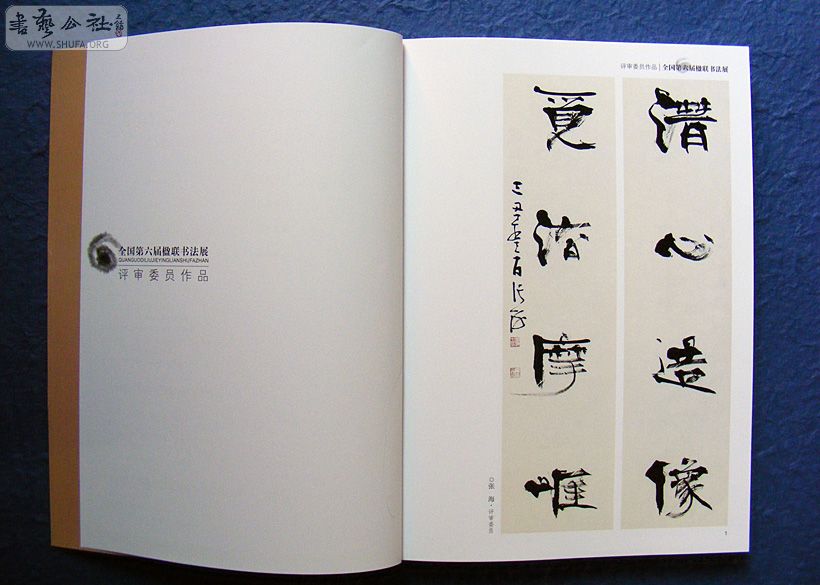 書藝公社
WWW.SHUFA.ORG
全国第六届楹联书法展
QUANGUODILIUJIEYINGLIANSHUFAZHAN
评审委员作品
评审委员作品|全国第六届楹联书法展
潛心造像
覓諧摩崖
◎张 海·评审委员
1